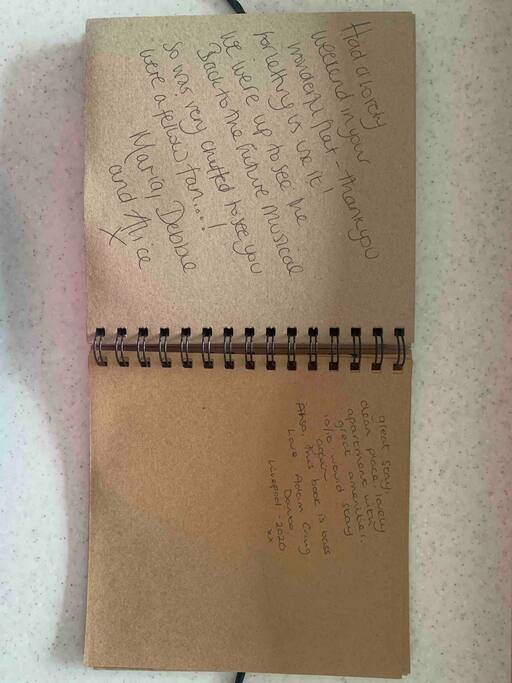 Had a lovely
weekend in your
wonderful flat - thank you
for letting us use it!
We were up to see the
Back to the Future musical
so was very chuffed to see you
were a fellow fan...!
Maria, Debbie
and Alice
X
great stay
clean place, lovely
apartment with
great amenities.
10/10 would stay
again
Also, this book is boss
Love Adam Craig
Liverpool - 2020
xx